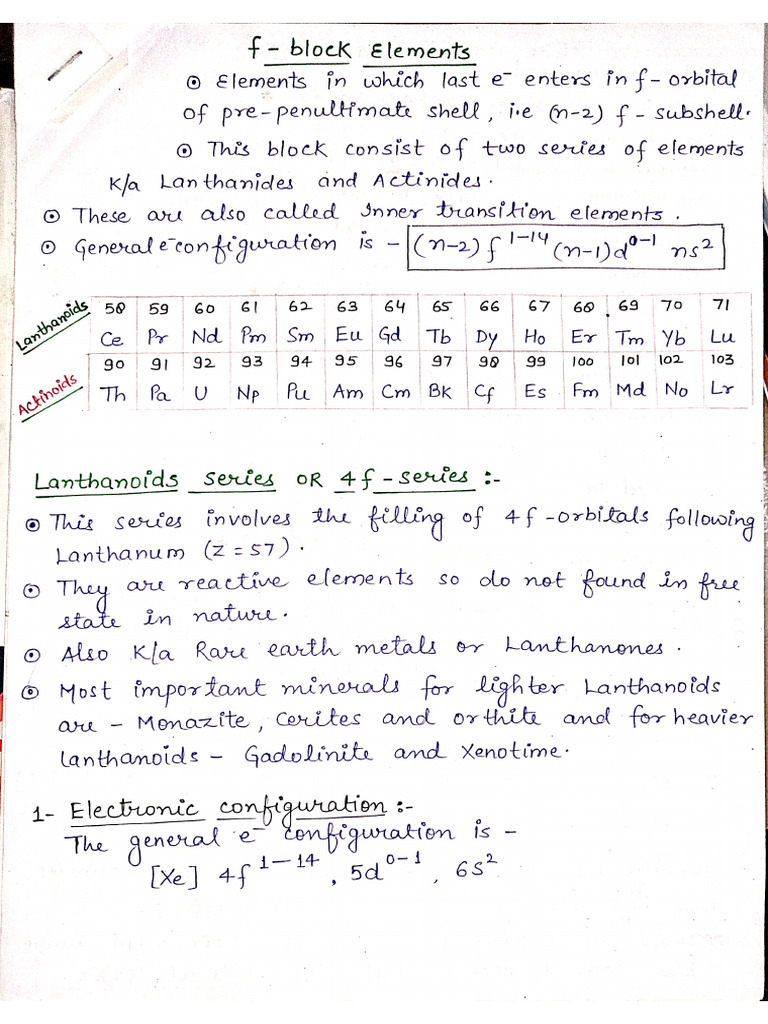 f-block Elements
⊙ Elements in which last e⁻ enters in f-orbital
of pre-penultimate shell, i.e (n-2) f-subshell.
⊙ This block consist of two series of elements
K/a Lanthanides and Actinides.
⊙ These are also called Inner transition elements.
⊙ General e⁻configuration is - (n-2) f¹⁻¹⁴ (n-1)d⁰⁻¹ ns²
Lanthanoids 58 59 60 61 62 63 64 65 66 67 68 69 70 71
Ce Pr Nd Pm Sm Eu Gd Tb Dy Ho Er Tm Yb Lu
Actinoids 90 91 92 93 94 95 96 97 98 99 100 101 102 103
Th Pa U Np Pu Am Cm Bk Cf Es Fm Md No Lr
Lanthanoids series OR 4f-series :-
⊙ This series involves the filling of 4f-orbitals following
Lanthanum (Z=57).
⊙ They are reactive elements so do not found in free
state in nature.
⊙ Also K/a Rare earth metals or Lanthanones.
⊙ Most important minerals for lighter Lanthanoids
are - Monazite, Cerites and orthite and for heavier
lanthanoids - Gadolinite and Xenotime.
1- Electronic configuration :-
The general e⁻ configuration is -
[Xe] 4f¹⁻¹⁴, 5d⁰⁻¹, 6S²